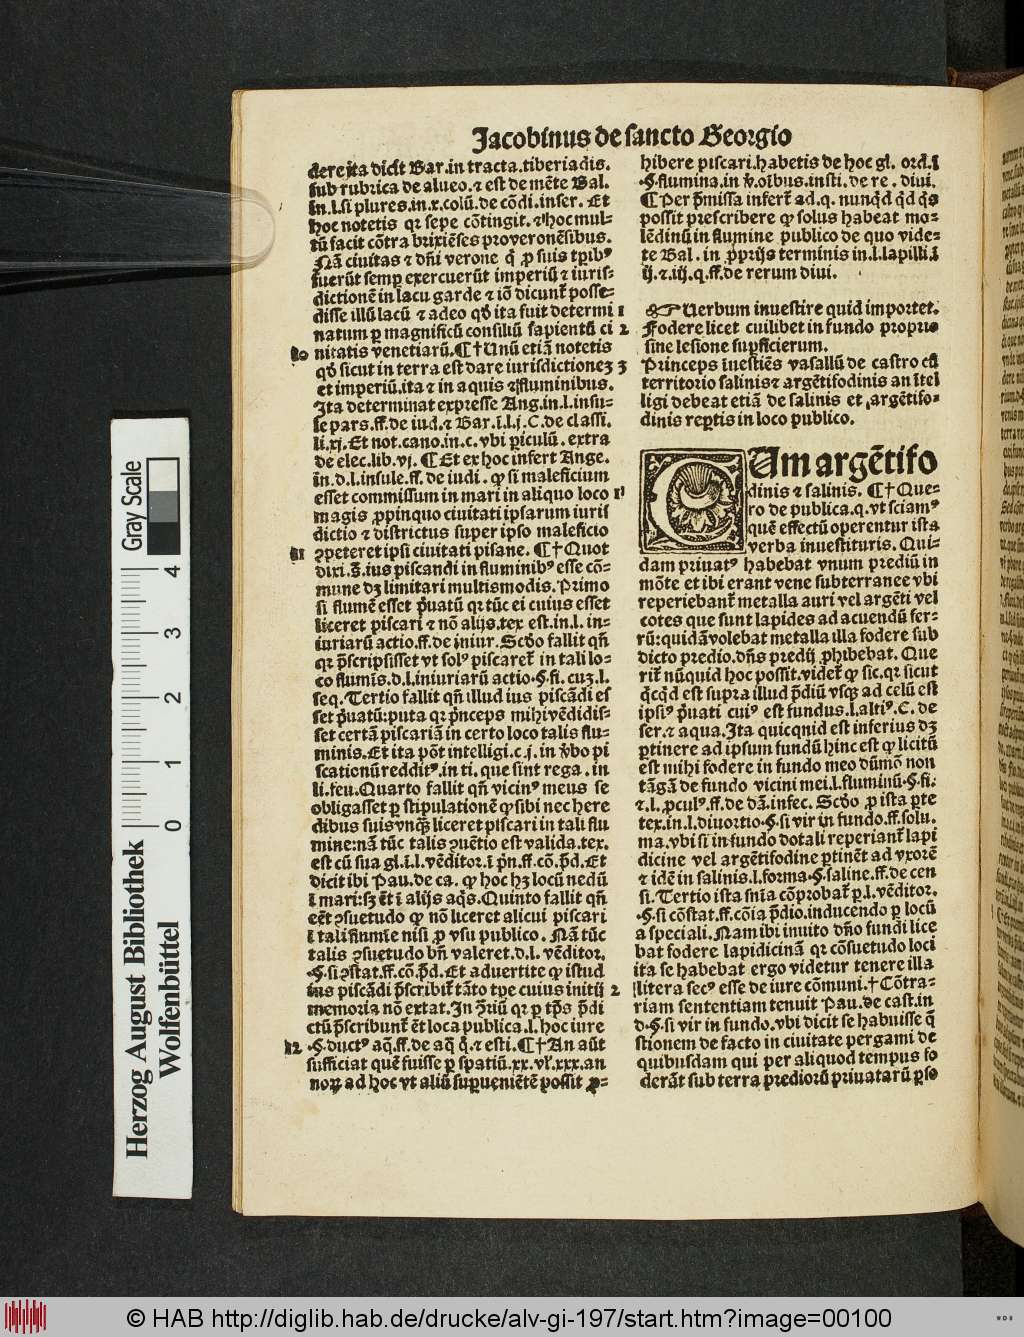 Jacobinus de sancto Georgio
dere ita dicit Bar. in tracta. tiberiadis.
sub rubrica de alueo. ⁊ est de mēte Bal.
in. l. si plures. in. x. colū. de cōdi. inser. Et
hoc notetis qꝛ sepe cōtingit. ⁊ hoc mul⸗
tū facit cōtra brixiēses pro veronēsibus.
Nā ciuitas ⁊ dn̄i verone q̄ ꝓ suis tꝑibꝰ
fuerūt semꝑ exercuerūt imperiū ⁊ iuris⸗
dictionē in lacu garde ⁊ iō dicunt̄ posse⸗
disse illū lacū ⁊ adeo qđ ita fuit determi
natum ꝑ magnificū consiliū sapientū ci
10 uitatis venetiarū. ¶ † Unū etiā notetis
qđ sicut in terra est dare iurisdictionez
et imperiū. ita ⁊ in aquis ⁊ fluminibus.
Ita determinat expresse Ang. in. l. insu⸗
le pars. ff. de iud. ⁊ Bar. ī. l. j. C. de classi.
li. xj. Et not. cano. in. c. vbi ꝑiculū. extra
de elec. lib. vj. ¶ Et ex hoc infert Ange.
in. d. l. insule. ff. de iudi. ꝙ si maleficium
esset commissum in mari in aliquo loco
magis ꝓpinquo ciuitati ipsarum iuris
dictio ⁊ districtus super ipso maleficio
11 ꝯpeteret ipsi ciuitati pisane. ¶ † Quot
dixi. s̄. ius piscandi in fluminibꝰ esse cō⸗
mune dꝫ limitari multismodis. Primo
si flumē esset p̄uatū qꝛ tūc ei cuius esset
liceret piscari ⁊ nō alijs. tex est. in. l. in⸗
iuriarū actio. ff. de iniur. Scđo fallit qn̄
qꝛ p̄scripsisset vt solꝰ piscaret̄ in tali lo⸗
co flumīs. d. l. iniuriarū actio. §. fi. cuz. l.
seq. Tertio fallit qn̄ illud ius piscādi es
set p̄uatū: puta qꝛ p̄nceps mihi vēdidis⸗
set certā piscariā in certo loco talis flu⸗
minis. Et ita pōt intelligi. c. j. in v̄bo pi
scationū redditꝰ. in ti. que sint rega. in
li. feu. Quarto fallit qn̄ vicinꝰ meus se
obligasset ꝑ stipulationē ꝙ sibi nec here
dibus suis vnqꝫ liceret piscari in tali flu
mine: nā tūc talis ꝯuētio est valida. tex.
est cū sua gl. ī. l. vēditor. ī prin. ff. cō. p̄d. Et
dicit ibi Pau. de ca. ꝙ hoc hꝫ locū nedū
ī mari: sꝫ ēt ī alijs aqs. Quinto fallit qn̄
eēt ꝯsuetudo ꝙ nō liceret alicui piscari
ī tali flumīe nisi ꝓ vsu publico. Nā tūc
talis ꝯsuetudo bn̄ valeret. d. l. vēditor.
§. si ꝯstat. ff. cō. p̄d. Et aduertite ꝙ istud
ius piscādi p̄scribit̄ tāto tꝑe cuius initij
memoria nō extat. In ꝯriū qꝛ ꝑ tp̄s p̄di
ctū p̄scribunt̄ ēt loca publica. l. hoc iure
12 §. ductꝰ aq̄. ff. de aq̄ q̄. ⁊ esti. ¶ † An aūt
sufficiat quē fuisse ꝑ spatiū. xx. vł. xxx. an
noꝝ ad hoc vt aliū suꝑueniētē possit ꝓ⸗
hibere piscari. habetis de hoc gl. ord. ī
§. flumina. in v̄. oībus. insti. de re. diui.
¶ Per p̄missa infert̄ ad. q. nunqđ qđ qs
possit prescribere ꝙ solus habeat mo⸗
lēdinū in flumine publico de quo vide⸗
te Bal. in ꝓprijs terminis in. l. lapilli. ī
ij. ⁊. iij. q. ff. de rerum diui.
1 ☞ Uerbum inuestire quid importet.
2 Fodere licet cuilibet in fundo proprio
sine lesione suꝑficierum.
3 Princeps īuestiēs vasallū de castro cū
territorio salinis ⁊ argētifodinis an ītel
ligi debeat etiā de salinis et argētifo⸗
dinis reꝑtis in loco publico.
CUm argētifo
1 dinis ⁊ salinis. ¶ † Que⸗
ro de publica. q. vt sciamꝰ
quē effectū operentur ista
verba inuestituris. Qui⸗
dam priuatꝰ habebat vnum prediū in
mōte et ibi erant vene subterranee vbi
reperiebant̄ metalla auri vel argēti vel
cotes que sunt lapides ad acuendū fer⸗
rū: quidā volebat metalla illa fodere sub
dicto predio. dn̄s predij ꝓhibebat. Que
rit̄ nūquid hoc possit. videt̄ ꝙ sic. qꝛ sicut
qcqd est supra illud p̄diū vsqꝫ ad celū est
ipsiꝰ p̄uati cuiꝰ est fundus. l. altiꝰ. C. de
ser. ⁊ aqua. Ita quicquid est inferius dꝫ
ꝑtinere ad ipsum fundū hinc est ꝙ licitū
est mihi fodere in fundo meo dūmō non
tāgā de fundo vicini mei. l. fluminū. §. fi.
⁊. l. ꝓculꝰ. ff. de dā. infec. Scđo ꝓ ista ꝑte
tex. in. l. diuortio. §. si vir in fundo. ff. solu.
ma. vbi si in fundo dotali reperiant̄ lapi
dicine vel argētifodine ꝑtinēt ad vxorē
⁊ idē in salinis. l. forma. §. saline. ff. de cen
si. Tertio ista sn̄ia cōprobat̄ ꝑ. l. vēditor.
§. si cōstat. ff. cōia p̄dio. inducendo ꝑ locū
a speciali. Nam ibi inuito dn̄o fundi lice
bat fodere lapidicinā qꝛ cōsuetudo loci
ita se habebat ergo videtur tenere illa
2 litera secꝰ esse de iure cōmuni. † Cōtra⸗
riam sententiam tenuit Pau. de cast. in
d. §. si vir in fundo. vbi dicit se habuisse q̄
stionem de facto in ciuitate pergami de
quibusdam qui per aliquod tempus fo
derāt sub terra prediorū priuatarū ꝑso
Gray Scale
0 1 2 3 4
Herzog August Bibliothek
Wolfenbüttel
© HAB http://diglib.hab.de/drucke/alv-gi-197/start.htm?image=00100